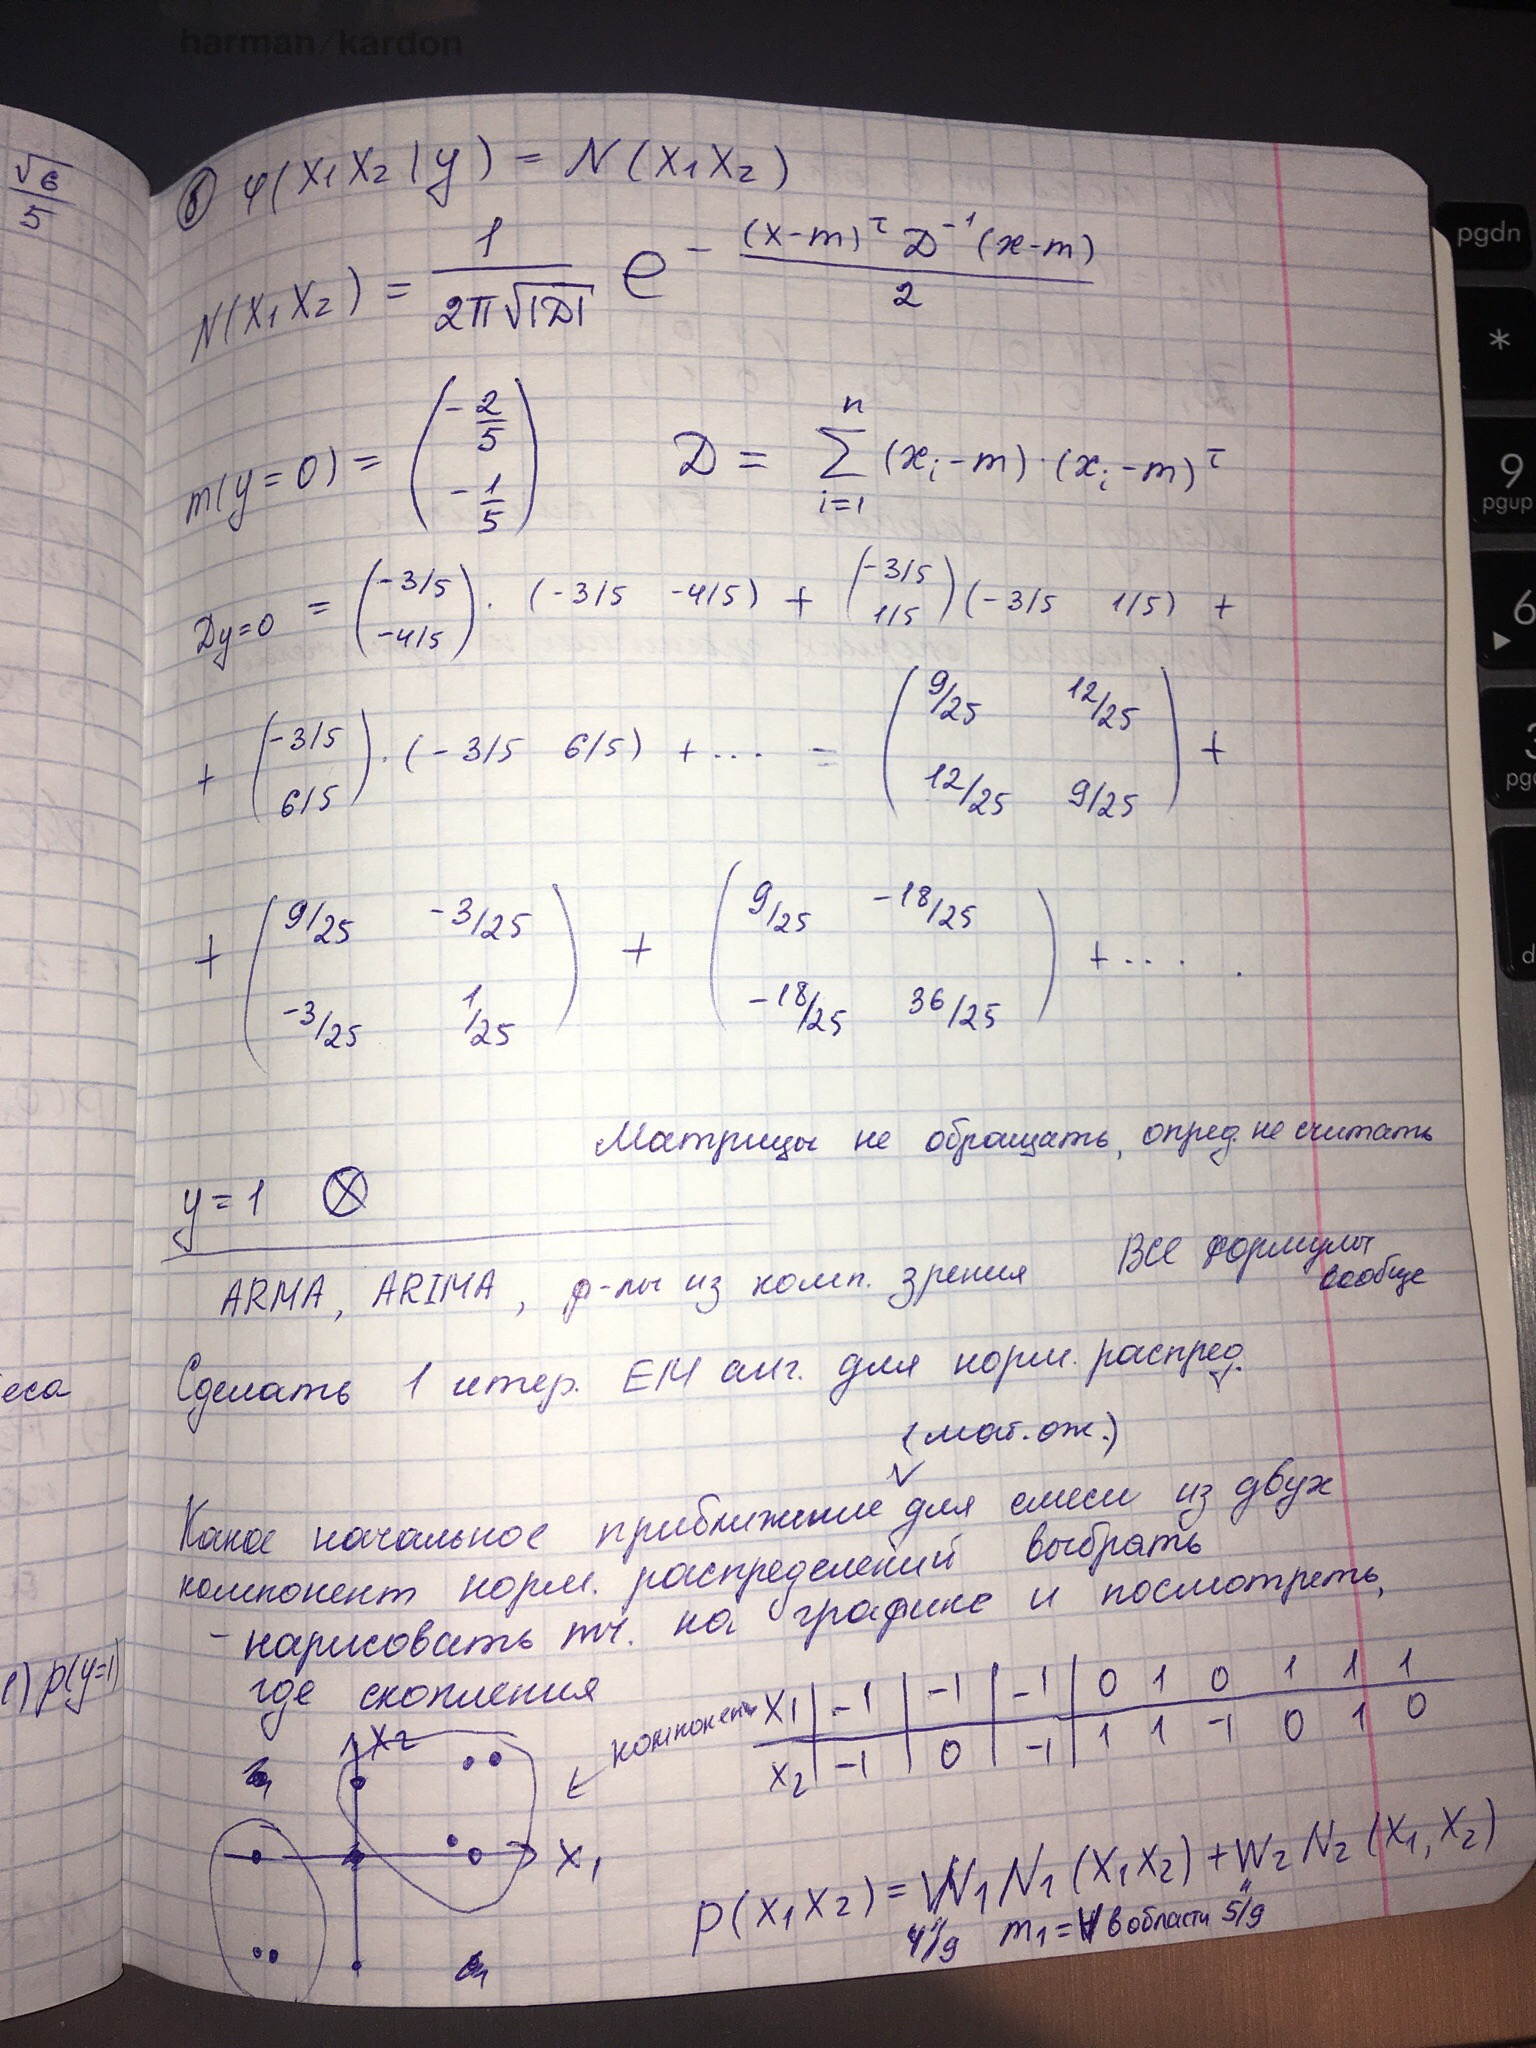 harman/kardon
√6/5
б) φ(x₁x₂|y) = N(x₁x₂)
N(x₁x₂) = 1/(2π√|D|) e^(-(x-m)ᵀ D⁻¹ (x-m)/2)
m(y=0) = (-2/5; -1/5) D = Σ_{i=1}^{n} (xᵢ-m)·(xᵢ-m)ᵀ
D y=0 = (-3/5; -4/5)·(-3/5 -4/5) + (-3/5; 1/5)(-3/5 1/5) +
+ (-3/5; 6/5)·(-3/5 6/5) + ... = (9/25 12/25; 12/25 9/25) +
+ (9/25 -3/25; -3/25 1/25) + (9/25 -18/25; -18/25 36/25) + ....
Матрицы не обращать, опред. не считать
y=1 ⊗
ARMA, ARIMA, ф-лы из комп. зрения Все формулы
вообще
Сделать 1 итер. EM алг. для норм. распред.
еса
(мат.ож.)
Какое начальное приближение для смеси из двух
компонент норм. распределений выбрать
- нарисовать тч. на графике и посмотреть,
где скопления
p(y=1)
компонент
x₁ -1 -1 -1 0 1 0 1 1 1
x₂ -1 0 -1 1 1 -1 0 1 0
x₂
x₁
p(x₁x₂) = W₁N₁(x₁x₂) + W₂N₂(x₁,x₂)
4/9 m₁ = ∀ в области 5/9
pgdn
*
9
pgup
6
3